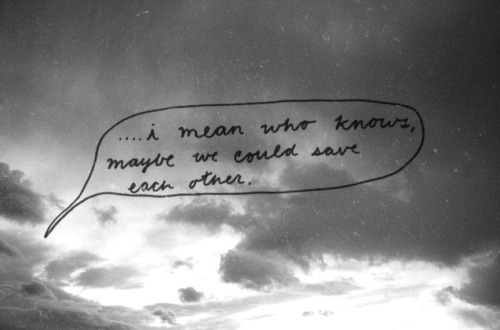 ....i mean who knows,
maybe we could save
each other.